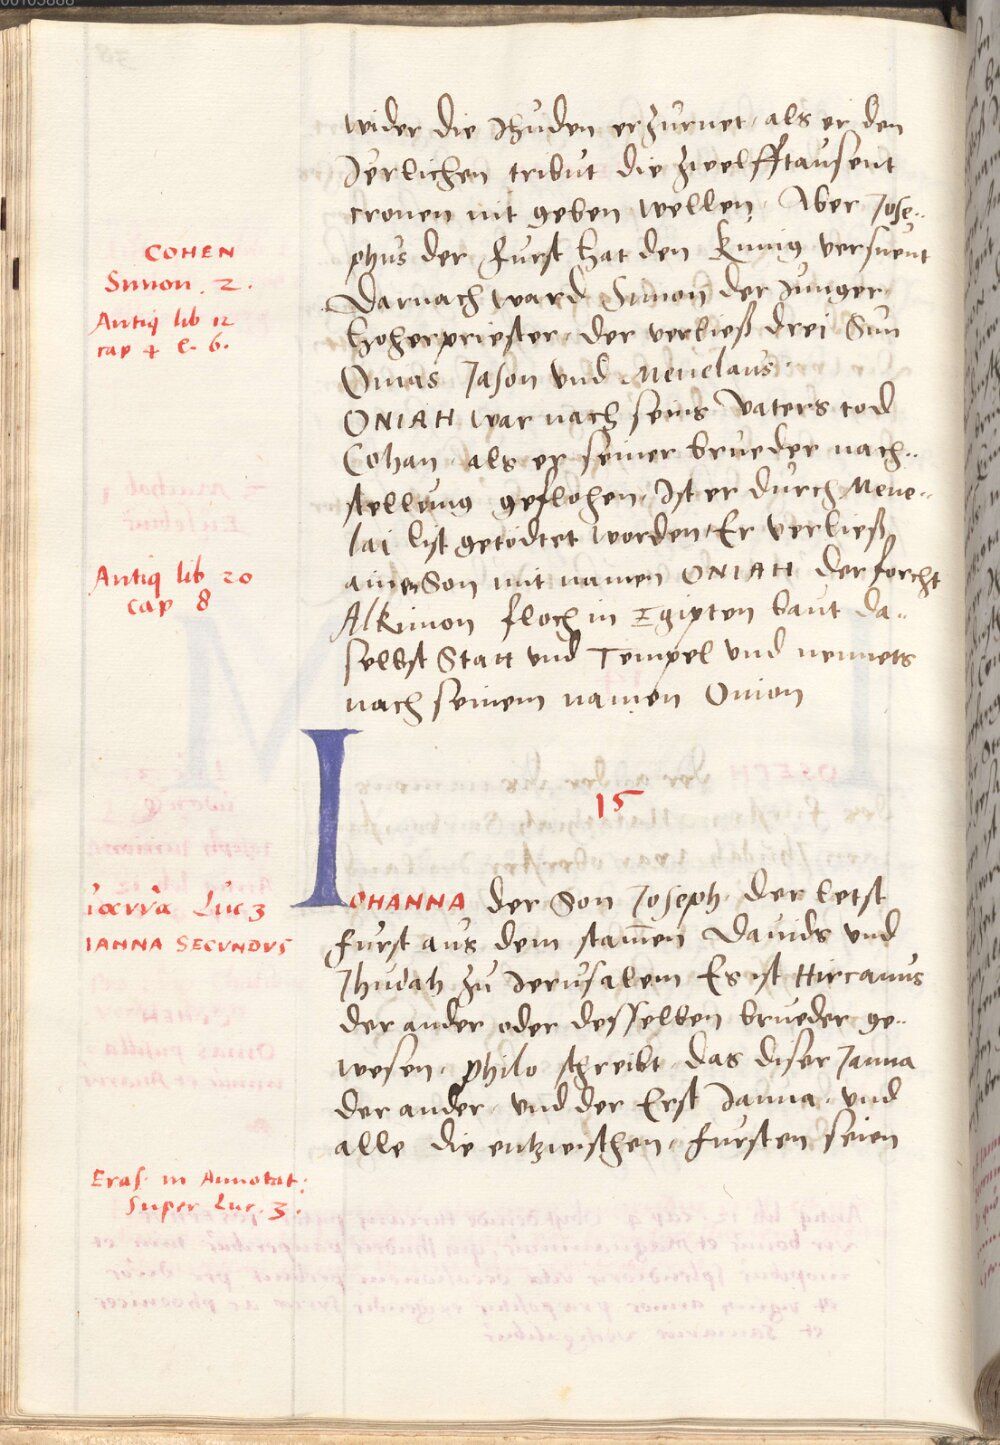 wider die Jhuden erzurnet, als er den
Jerlichen tribut die zwelfftausent
cronen nit geben wellen, Aber Jose-
phus der furst hat den Kunig versuent
Darnach ward Simon der Junger
hoherpriester, der verließ drei Sun
Onias Jason vnd Menelaus.
ONIAH war nach seins Vaters tod
Cohan, als er seiner brueder nach-
stellung geflohen, Ist er durch Mene-
lai list getödtet worden, Er verließ
ainen Son mit namen ONIAH der forcht
Alkimon floch in Egipten baut da-
selbst Statt vnd Tempel vnd nennets
nach seinem namen Onion
COHEN
Simon. 2.
Antiq lib 12
cap 4 e. 6.
Antiq lib 20
cap 8
15
IOHANNA der Son Joseph, der letst
furst aus dem stam̄en Dauids vnd
Jhudah zu Jerusalem Es ist Hircanus
der ander oder desselben brueder ge-
wesen, philo schreibt das diser Janna
der ander, vnd der Erst Janna, vnd
alle die entzwischen, fursten seien
ἰαννὰ Luc 3
IANNA SECVNDVS
Eras. in Annotat:
super Luc. 3.